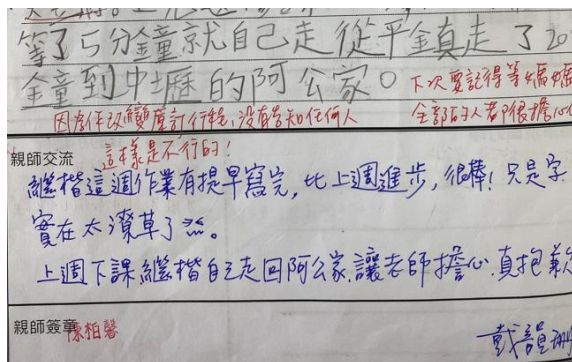 等了5分鐘就自己走從平鎮走了20
鐘到中壢的阿公家。
下次要記得等媽媽
因為你改變原訂行程,沒有告知任何人
全部的人都很擔心你
這樣是不行的!
親師交流
繼楷這週作業有提早寫完,比上週進步,很棒!只是字
實在太潦草了
上週下課繼楷自己走回阿公家.讓老師擔心.真抱歉
親師簽章
陳柏馨
戴